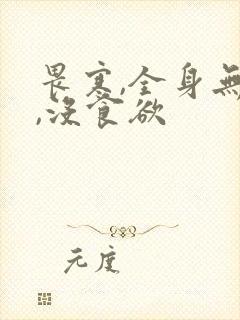 畏寒,全身無
,沒食欲
元度